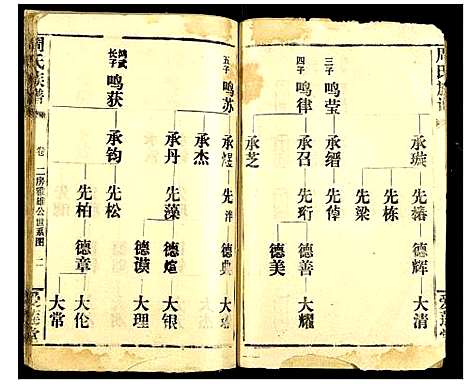 周氏族譜
承璇
先椿
德辉
大清
先栋
先梁
三子
鸣莹
承缙
先倬
四子
鸣律
承召
先珩
德善
大耀
德美
承芝
五子
鸣苏
承煜
先
德典
大
承杰
承丹
先藻
德煊
大银
德谟
大理
鸿武
长子
鸣荻
承钧
先松
先柏
德章
大伦
大常
周氏族譜
卷
二房雅雄公世系图
二
爱莲堂